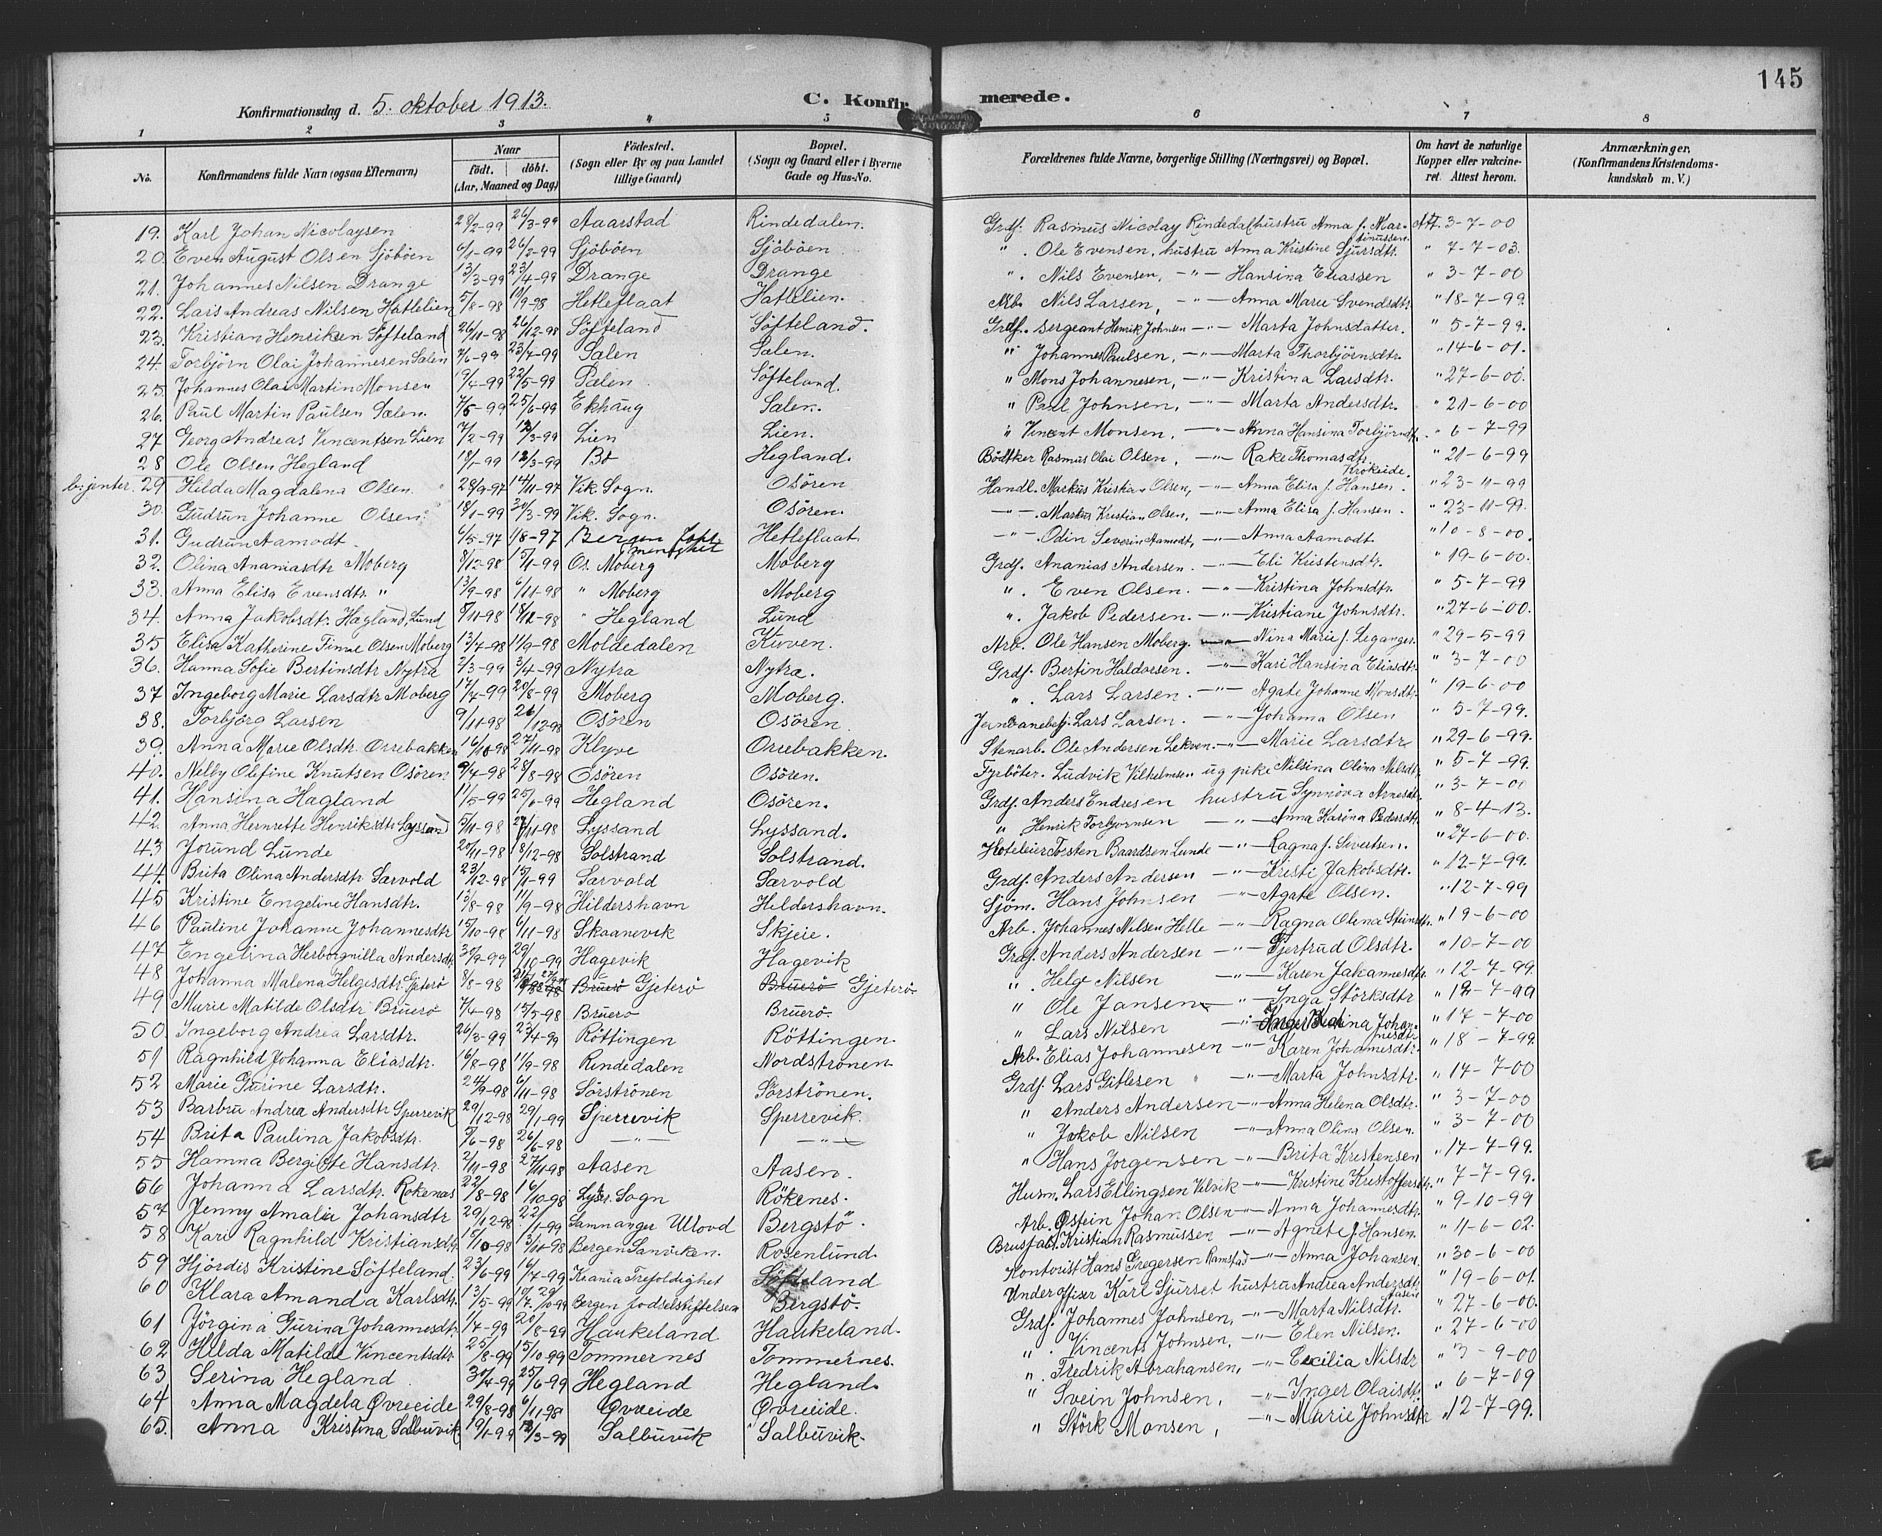 145
Konfirmationsdag d. 5. oktober 1913.
C. Konfir merede.
1 2 3 4 5 6 7 8
No.
Konfirmandens fulde Navn (ogsaa Efternavn)
Naar
født. døbt.
(Aar, Maaned og Dag)
Födested.
(Sogn eller By og paa Landet
tillige Gaard)
Bopæl.
(Sogn og Gaard eller i Byerne
Gade og Hus-No.
Forældrenes fulde Navne, borgerlige Stilling (Næringsvei) og Bopæl.
Om havt de naturlige
Kopper eller vakcine-
ret. Attest herom.
Anmærkninger,
(Konfirmandens Kristendoms-
kundskab m. V.)
19. Karl Johan Nicolaysen 28/2-99 26/3-99 Aarstad Rindedalen. Grdf. Rasmus Nicolay Rindedal hustru Anna f. Martinussen Att. 3-7-00
20. Even August Olsen Sjöböen 6/1-99 26/2-99 Sjöböen Sjöböen " Ole Evensen, hustru Anna Kristine Sjursdtr. " 7-7-03.
21. Johannes Nilsen Drange 13/3-99 23/4-99 Drange Drange " Nils Evensen, -"- Hansina Eliassen " 3-7-00
22. Lars Andreas Nilsen Hattelien 5/8-98 /9-98 Hetleflaat Hattelien. Arb. Nils Larsen, -"- Anna Marie Svendsdtr. " 18-7-99.
23. Kristian Henriksen Söfteland 26/11-98 26/12-98 Söfteland Söfteland. Grdf. Sergeant Henrik Johnsen -"- Marta Johnsdatter. " 5-7-99.
24. Torbjörn Olai Johannesen Salen 7/6-99 23/7-99 Salen Salen. " Johannes Paulsen, -"- Marta Thorbjörnsdtr. " 14-6-01.
25. Johannes Olai Martin Monsen 19/4-99 22/5-99 Söfteland. " Mons Johannesen, -"- Kristina Larsdtr. " 27-6-00.
26. Paul Martin Paulsen Sælen. 7/5-99 25/6-99 Ekhaug Salen. " Paul Johnsen, -"- Marta Andersdtr. " 21-6-00
27 Georg Andreas Vincentsen Lien 7/2-99 12/3-99 Lien Lien. " Vincent Monsen. -"- Anna Hansina Torbjörnsdtr. " 6-7-99
28 Ole Olsen Hegland 18/1-99 12/3-99 Bö Hegland. Bödtker Rasmus Olai Olsen, -"- Rake Thomasdtr. Krokeide. " 21-6-99
b. jenter. 29 Hilda Magdalena Olsen. 28/9-97 14/11-97 Vik. Sogn. Osören Handl. Markus Kristian Olsen, -"- Anna Elisa f. Hansen. " 23-11-99
30. Gudrun Johanne Olsen. 18/1-99 30/3-99 Vik. Sogn. Osören. -"- Markus Kristian Olsen, -"- Anna Elisa f. Hansen. " 23-11-99.
31. Gudrun Aamodt 6/5-97 1/8-97 Bergen menighet Hetleflaat -"- Odin Severin Aamodt, -"- Anna Aamodt " 10-8-00.
32. Olina Ananiasdtr Moberg 8/12-98 15/1-99 Os. Moberg Moberg Grdf. Ananias Andersen. -"- Eli Kristensdtr. " 19-6-00.
33. Anna Elisa Evensdtr. " 13/9-98 6/11-98 " Moberg Moberg " Even Olsen. -"- Kristina Johnsdtr. " 5-7-99
34. Anna Jakobsdtr. Hægland, Lund 8/11-98 18/12-98 " Hegland Lund " Jakob Pedersen. -"- Kristiane Johnsdtr. " 27-6-00.
35 Elisa Katherine Finne Olsen Moberg 13/7-98 11/9-98 Moldedalen Kuven. Arb. Ole Hansen Moberg. -"- Nina Marie f. Leganger. " 29-5-99
36. Hanna Sofie Bertinsdtr Nytra 2/3-99 3/4-99 Nytra Nytra. Grdf. Bertin Haldorsen. -"- Kari Hansina Eliasdtr. " 3-7-00
37 Ingeborg Marie Larsdtr Moberg 17/4-99 20/8-99 Moberg Moberg. " Lars Larsen. -"- Agate Johanne Monsdtr. " 19-6-00
38. Torbjörg Larsen 9/11-98 26/12-98 Osören Osören. Lars Larsen. -"- Johanna Olsen " 5-7-99.
39. Anna Marie Olsdtr. Orrebakken 16/10-98 27/11-98 Klyve Orrebakken. Stenarb. Ole Andersen Lekven. -"- Marie Larsdtr " 29-6-99.
40. Nelly Olefine Knutsen Osören 9/4-98 28/8-98 Osören Osören. Fyrböter. Ludvik Vilhelmsen ug pike Nilsina Olina Nilsdtr " 5-7-99.
41. Hansina Hagland 11/5-99 25/6-99 Hegland Osören. Grdf. Anders Endresen hustru Synnöva Arnesdtr " 3-7-00
42. Anna Henrette Henriksdtr Lyssand 5/11-98 27/11-98 Lyssand Lyssand. " Henrik Torbjornsen -"- Anna Karina Pedersdtr. " 8-4-13.
43. Jorund Lunde 20/11-98 18/12-98 Solstrand Solstrand. Hoteleier Torsten Baardsen Lunde -"- Ragna f. Sivertsen. " 27-6-00.
44. Brita Olina Andersdtr Sarvold 23/12-98 15/1-99 Sarvold Særvold Grdf. Anders Andersen -"- Kristi Jakobsdtr. " 12-7-99.
45 Kristine Engeline Hansdtr. 13/8-98 11/9-98 Hildershavn Hildershavn. Sjöm. Hans Johnsen -"- Agate Olsen. " 12-7-99
46 Pauline Johanne Johannesdtr 15/10-98 6/11-98 Skaanevik Skjeie. Arb. Johannes Nilsen Helle -"- Ragna Olena Steinsdtr " 19-6-00
47 Engelina Herborgvilla Andersdtr. 30/9-99 29/10-99 Hagevik Hagevik Grdf. Anders Andersen -"- Gjertrud Olsdtr. " 10-7-00
48 Johanna Malena Helgesdtr. Gjeterö 8/8-98 Bruerö Gjeterö Bruerö Gjeterö. " Helge Nilsen -"- Karen Johannesdtr. " 12-7-99.
49 Marie Matilde Olsdtr Bruerö 7/4-98 15/5-98 Bruerö Bruerö. " Ole Jansen -"- Inga Störksdtr " 12-7-99
50. Ingeborg Andrea Larsdtr. 26/3-99 23/4-99 Röttingen Röttingen. " Lars Nilsen -"- Johannesdtr " 17-7-00
51 Ragnhild Johanna Eliasdtr. 16/8-98 11/9-98 Rindedalen Nordströnen. Arb. Elias Johannesen -"- Karen Johannesdtr. " 18-7-99
52 Marie Gurine Larsdtr. 24/9-98 6/11-98 Sörströnen Sörströnen. Grdf. Lars Gitlesen -"- Marta Johnsdtr. " 14-7-00
53 Barbru Andrea Andersdtr Sperrevik 29/12-98 29/1-99 Sperrevik Sperrevik. " Anders Andersen -"- Anna Helena Olsdtr. " 3-7-00
54 Brita Paulina Jakobsdtr. 5/6-98 26/6-98 -"- -"- " Jakob Nilsen -"- Anna Olina Olsen. " 3-7-00
55 Hanna Bergitte Hansdtr. 2/11-98 27/11-98 Aasen Aasen. " Hans Jorgensen -"- Brita Kristensen " 17-7-99.
56 Johanna Larsdtr. Rökenas 22/8-98 16/10-98 Sogn Rökenes. Husm. Lars Ellingsen Vilvik -"- Kristine Kristoffersdtr. " 7-7-99.
57 Jenny Amalia Johansdtr 29/12-98 22/1-99 Samnanger Bergstö. Arb. Østein Johan Olsen -"- Anna Johannesdtr. " 9-10-99
58 Kari Ragnhild Kristiansdtr. 15/10-98 13/11-98 Bergen Sanviken. Rosenlund. Brusfab. Kristian Rasmussen -"- Agnete f. Hansen. " 11-6-02.
59 Hjördis Kristine Söfteland. 23/6-99 16/7-99 Trefoldighet Söfteland Kontorist Hans Gregersen Ramstad -"- Anna Johansen. " 30-6-00
60 Klara Amanda Karlsdtr. 13/5-99 Bergen Födselsstiftelsen Bergstö. Underoffiser Karl Sjurset hustru Andrea Andersdtr " 19-6-01.
61 Jörgina Gurina Johannesdtr 1/7-99 20/8-99 Haukeland Haukeland. Grdf. Johannes Johnsen, -"- Marta Nilsdtr. " 27-6-00.
62 Hilda Matilde Vincentsdtr. 25/8-99 15/10-99 Tommernes Tommernes. " Vincents Johnsen, -"- Elen Nilsen. " 27-6-00
63 Serina Hegland 30/4-99 25/6-99 Hegland Hegland. " Fredrik Abrahansen, -"- Cecilia Nilsdr " 3-9-00
64 Anna Magdela Øvreeide 29/8-98 6/11-98 Øvreeide Øvreeide. " Svein Johnsen, -"- Inger Olaisdtr " 6-7-09
65. Anna Kristina Salbuvik 19/1-99 12/3-99 Salbuvik Salbuvik. " Störk Monsen, -"- Marie Johnsdtr " 12-7-99.